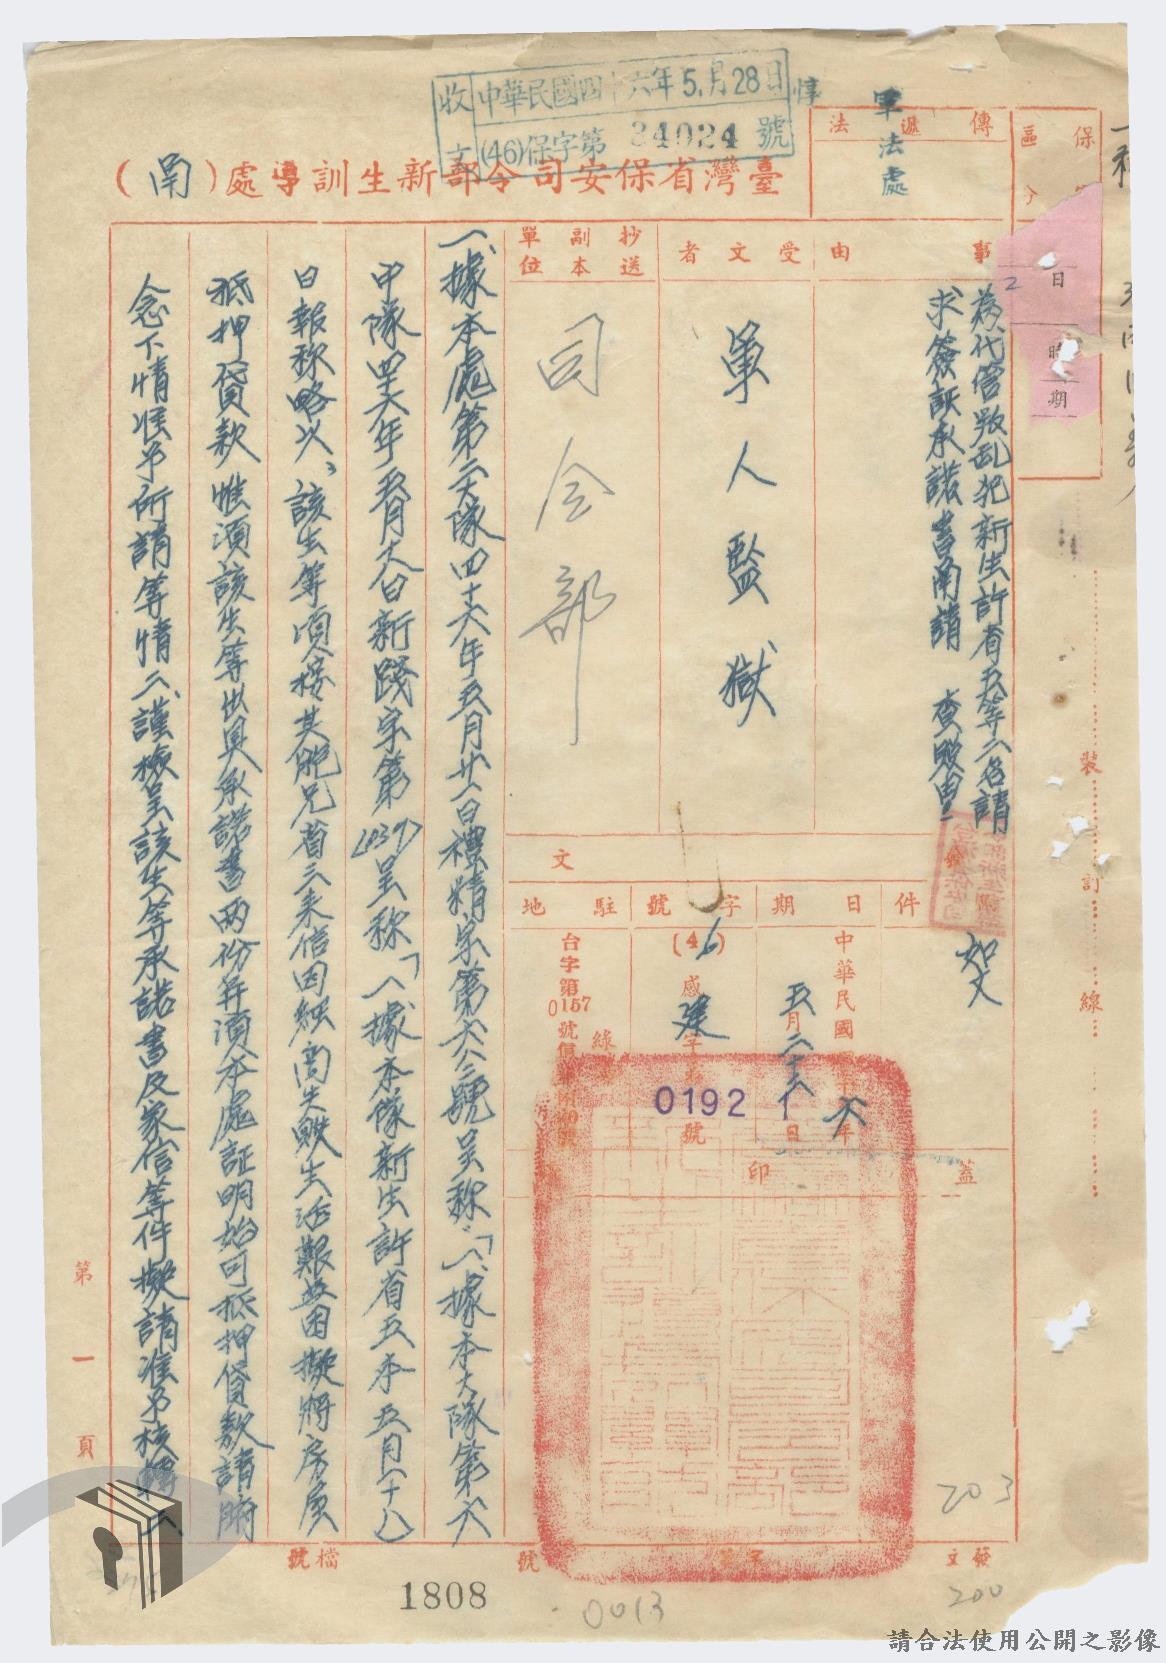 收文
中華民國四十六年5月28日
(46)保字第34024號
軍法處
臺灣省保安司令部新生訓導處(南)
保
區分
傳遞法
日
時
期
事由
為代管叛亂犯新生許省五等二名請
求簽証承諾書函請 查照由
受文者
軍人監獄
抄送副本單位
司令部
件
如文
文
日期
中華民國四十六年
五月二十六日
字號
(46)感建字第
01921
號
駐地
台字第0157號信箱綠島
蓋印
一、據本處第二大隊四十六年五月廿一日禮精字第六八二號呈称:「八、據本大隊第六
中隊四六年五月大日新踐字第1039呈称「八據本隊新生許省五本五月十八
日報称略以:該生等頃接其胞兄省三來信因經商失敗生活艱苦困擬將房屋
抵押貸款惟須該生等出具承諾書兩份并須本處証明始可抵押貸款請賜
念下情准予所請等情二、謹檢呈該生等承諾書及家信等件擬請准予核轉
裝
訂
線
第一頁
203
檔號
發文
字第
號
1808
0013
200
請合法使用公開之影像